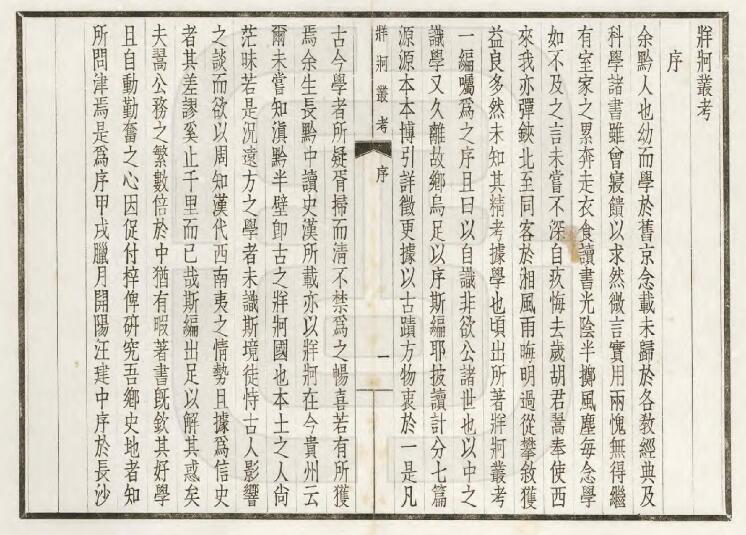 牂牁叢考
序
余黔人也幼而學於舊京念載未歸於各敎經典及
科學諸書雖曾寢饋以求然微言實用兩愧無得繼
有室家之累奔走衣食讀書光陰半擲風塵每念學
如不及之言未嘗不深自疚悔去歲胡君翯奉使西
來我亦彈鋏北至同客於湘風雨晦明過從攀敘獲
益良多然未知其精考據學也頃出所著牂牁叢考
一編囑爲之序且曰以自識非欲公諸世也以中之
識學又久離故鄉烏足以序斯編耶披讀計分七篇
源源本本博引詳徵更據以古蹟方物衷於一是凡
牂牁叢考
序
一
古今學者所疑胥掃而淸不禁爲之暢喜若有所獲
焉余生長黔中讀史漢所載亦以牂牁在今貴州云
爾未嘗知滇黔半壁卽古之牂牁國也本土之人尙
茫昧若是況遠方之學者未識斯境徒恃古人影響
之談而欲以周知漢代西南夷之情勢且據爲信史
者其差謬奚止千里而已哉斯編出足以解其惑矣
夫翯公務之繁數倍於中猶有暇著書旣欽其好學
且自動勤奮之心因促付梓俾硏究吾鄉史地者知
所問津焉是爲序甲戌臘月開陽汪建中序於長沙